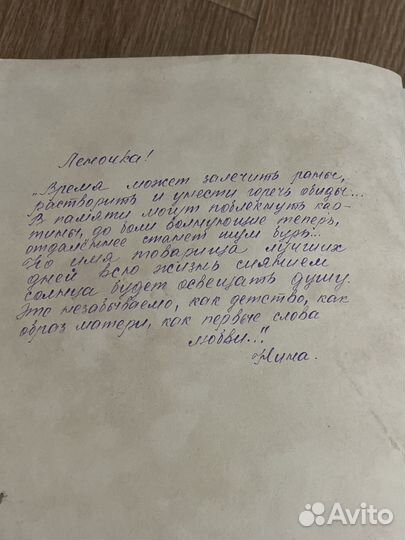 Леночка!
„Время может залечить раны,
растворить и унести горечь обиды...
В памяти могут поблекнуть кар-
тины, до боли волнующие теперь,
отдалённее станет шум бурь...
Но имя товарища лучших
дней всю жизнь сиянием
солнца будет освещать душу.
Это незабываемо, как детство, как
образ матери, как первые слова
любви..."
Нина.
Avito